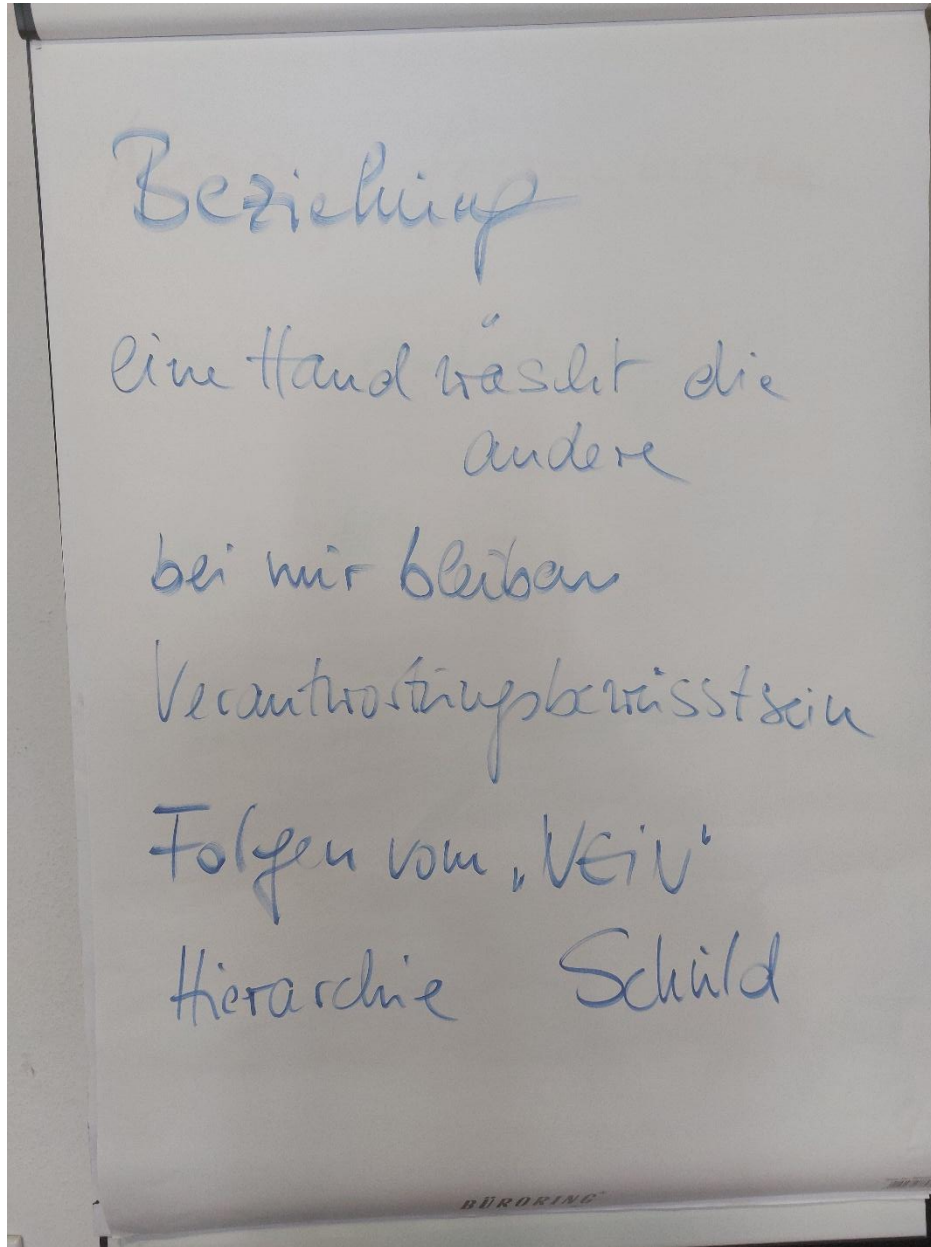 Beziehung
eine Hand wäscht die
andere
bei mir bleiben
Verantwortungsbewusstsein
Folgen vom „NEiN“
Hierarchie Schuld
BÜRORING